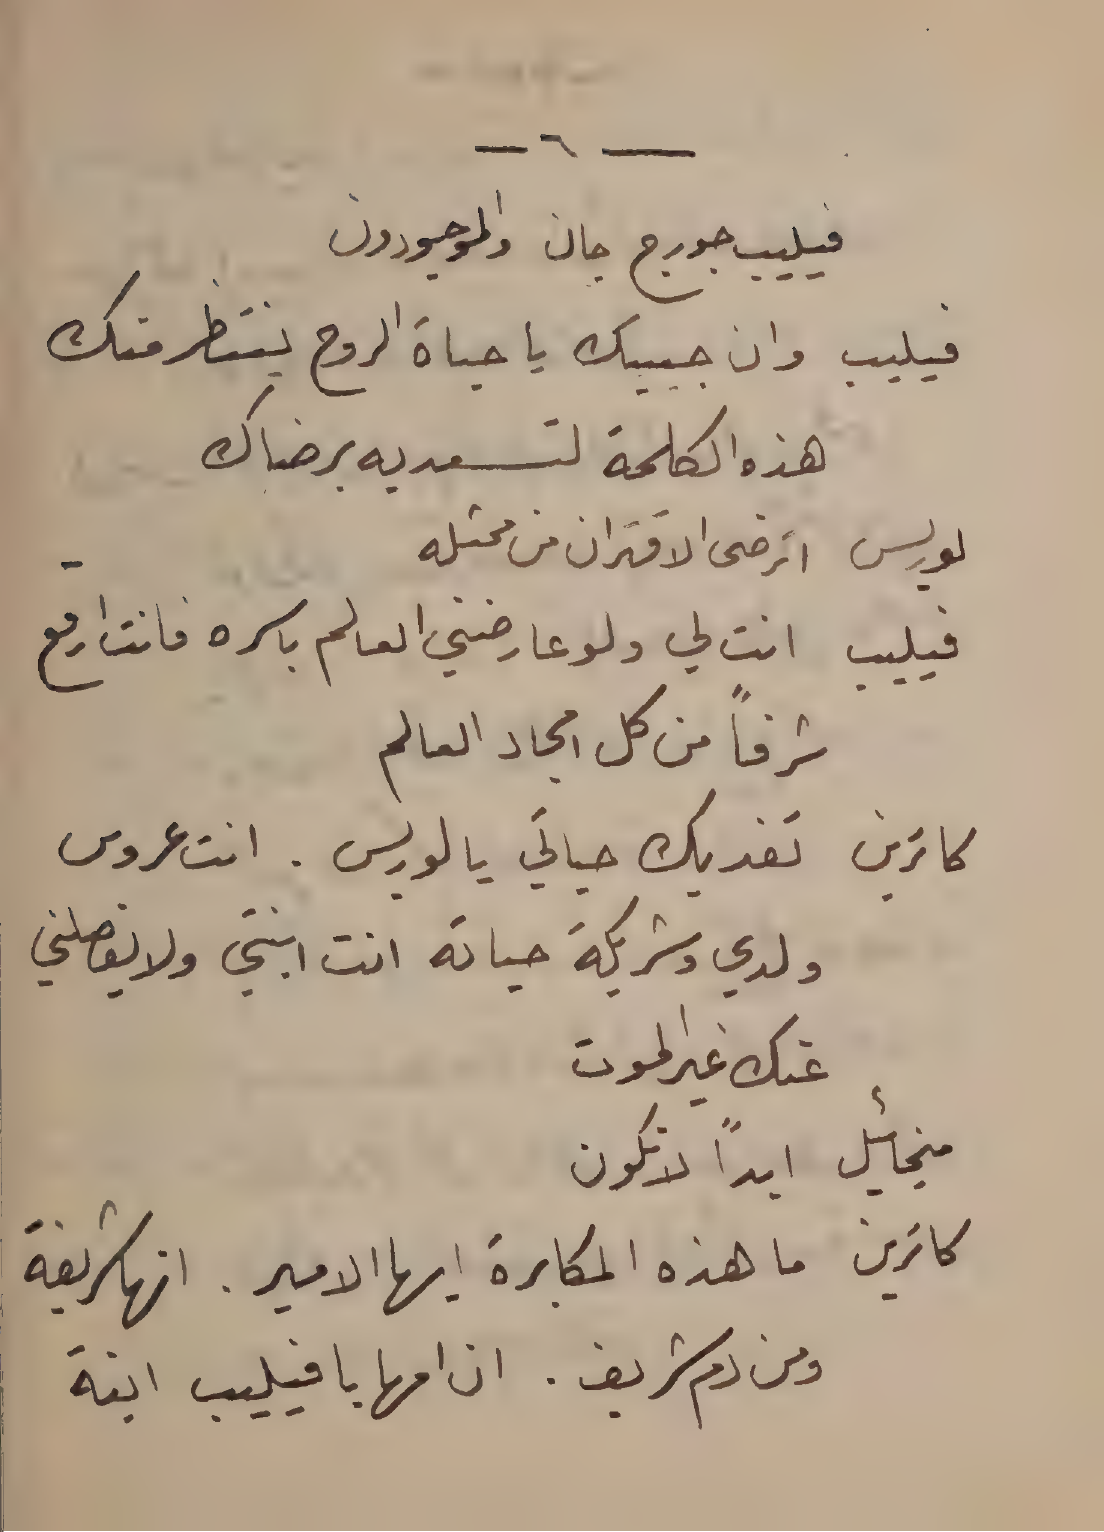 — ٦ —
فيليب جورج جان والموجودون
فيليب وان حبيبك يا حياة الروح ينتظر منك
هذه الكلمة لتسعديه برضاك
لوريس اترضى الاقتران من ممثله
فيليب انت لي ولو عارضني العالم باسره فانت ارفع
شرفاً من كل امجاد العالم
كاترين تفديك حياتي يا لوريس . انت عروس
ولدي وشريكة حياته انت ابنتي ولا يفصلني
عنك غير الموت
ميخائيل ابداً لا تكون
كاترين ما هذه المكابرة ايها الامير . انها شريفة
ومن دم شريف . ان امها يا فيليب ابنة